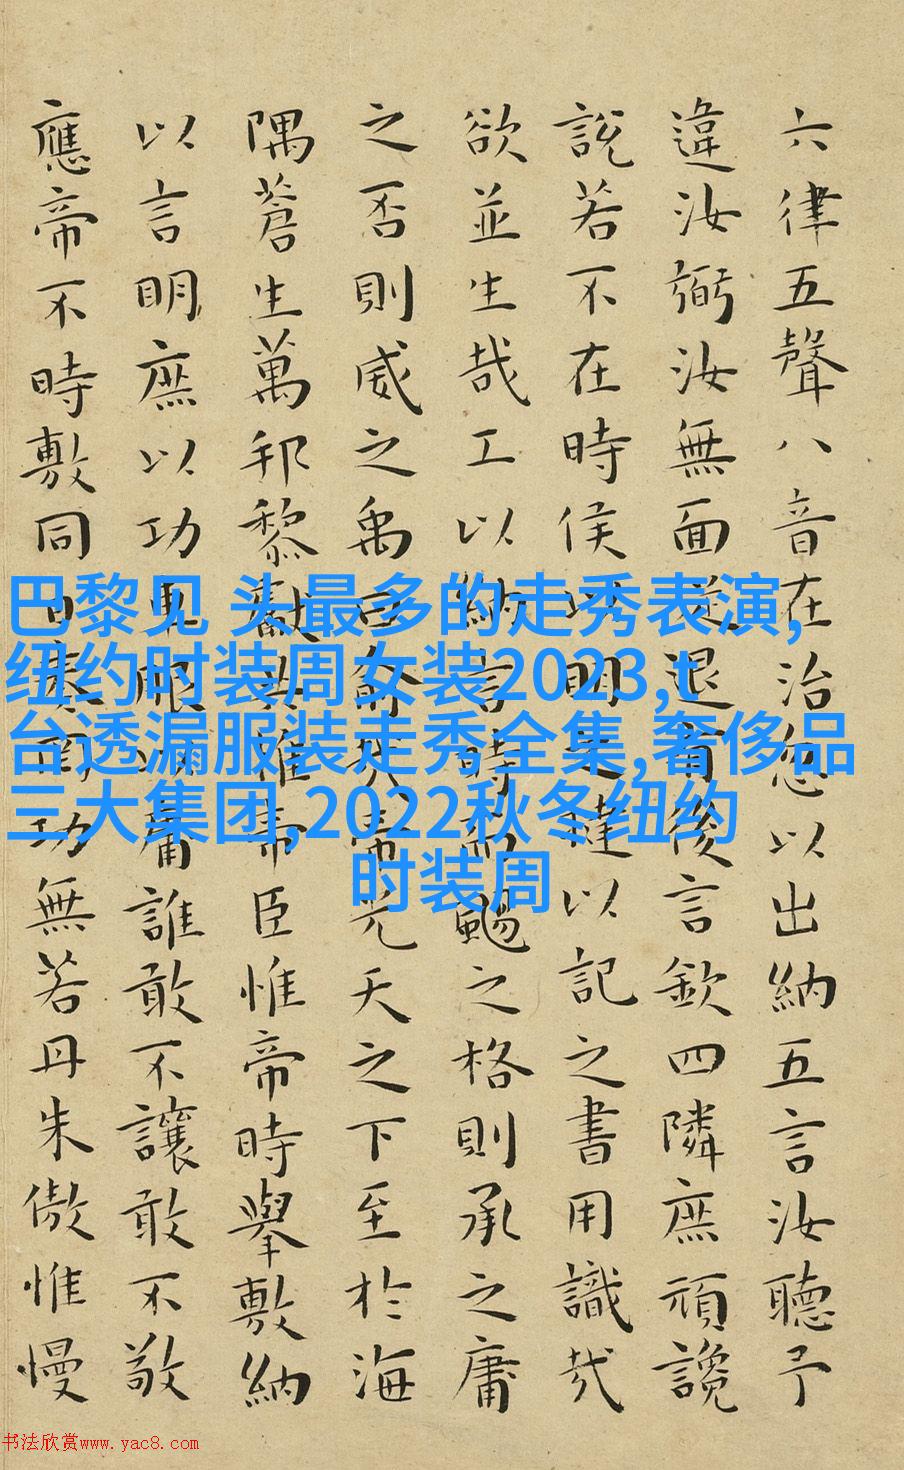 六律五聲八音在治忽以出納五言汝聽予
違汝弼汝無面從退有後言欽四隣庶頑讒
說若不在時侯以明之撻以記之書用識哉
欲並生哉工以納言時而颺之格則承之庸
之否則威之禹曰俞哉帝光天之下至於海
隅蒼生萬邦黎獻共惟帝臣惟帝時舉敷納
以言明庶以功車服以庸誰敢不讓敢不敬
應帝不時敷同日奏罔功無若丹朱傲惟慢
巴黎见 头最多的走秀表演,
纽约时装周女装2023,t
台透漏服装走秀全集,奢侈品
三大集团,2022秋冬纽约
时装周
书法欣赏www.yac8.com